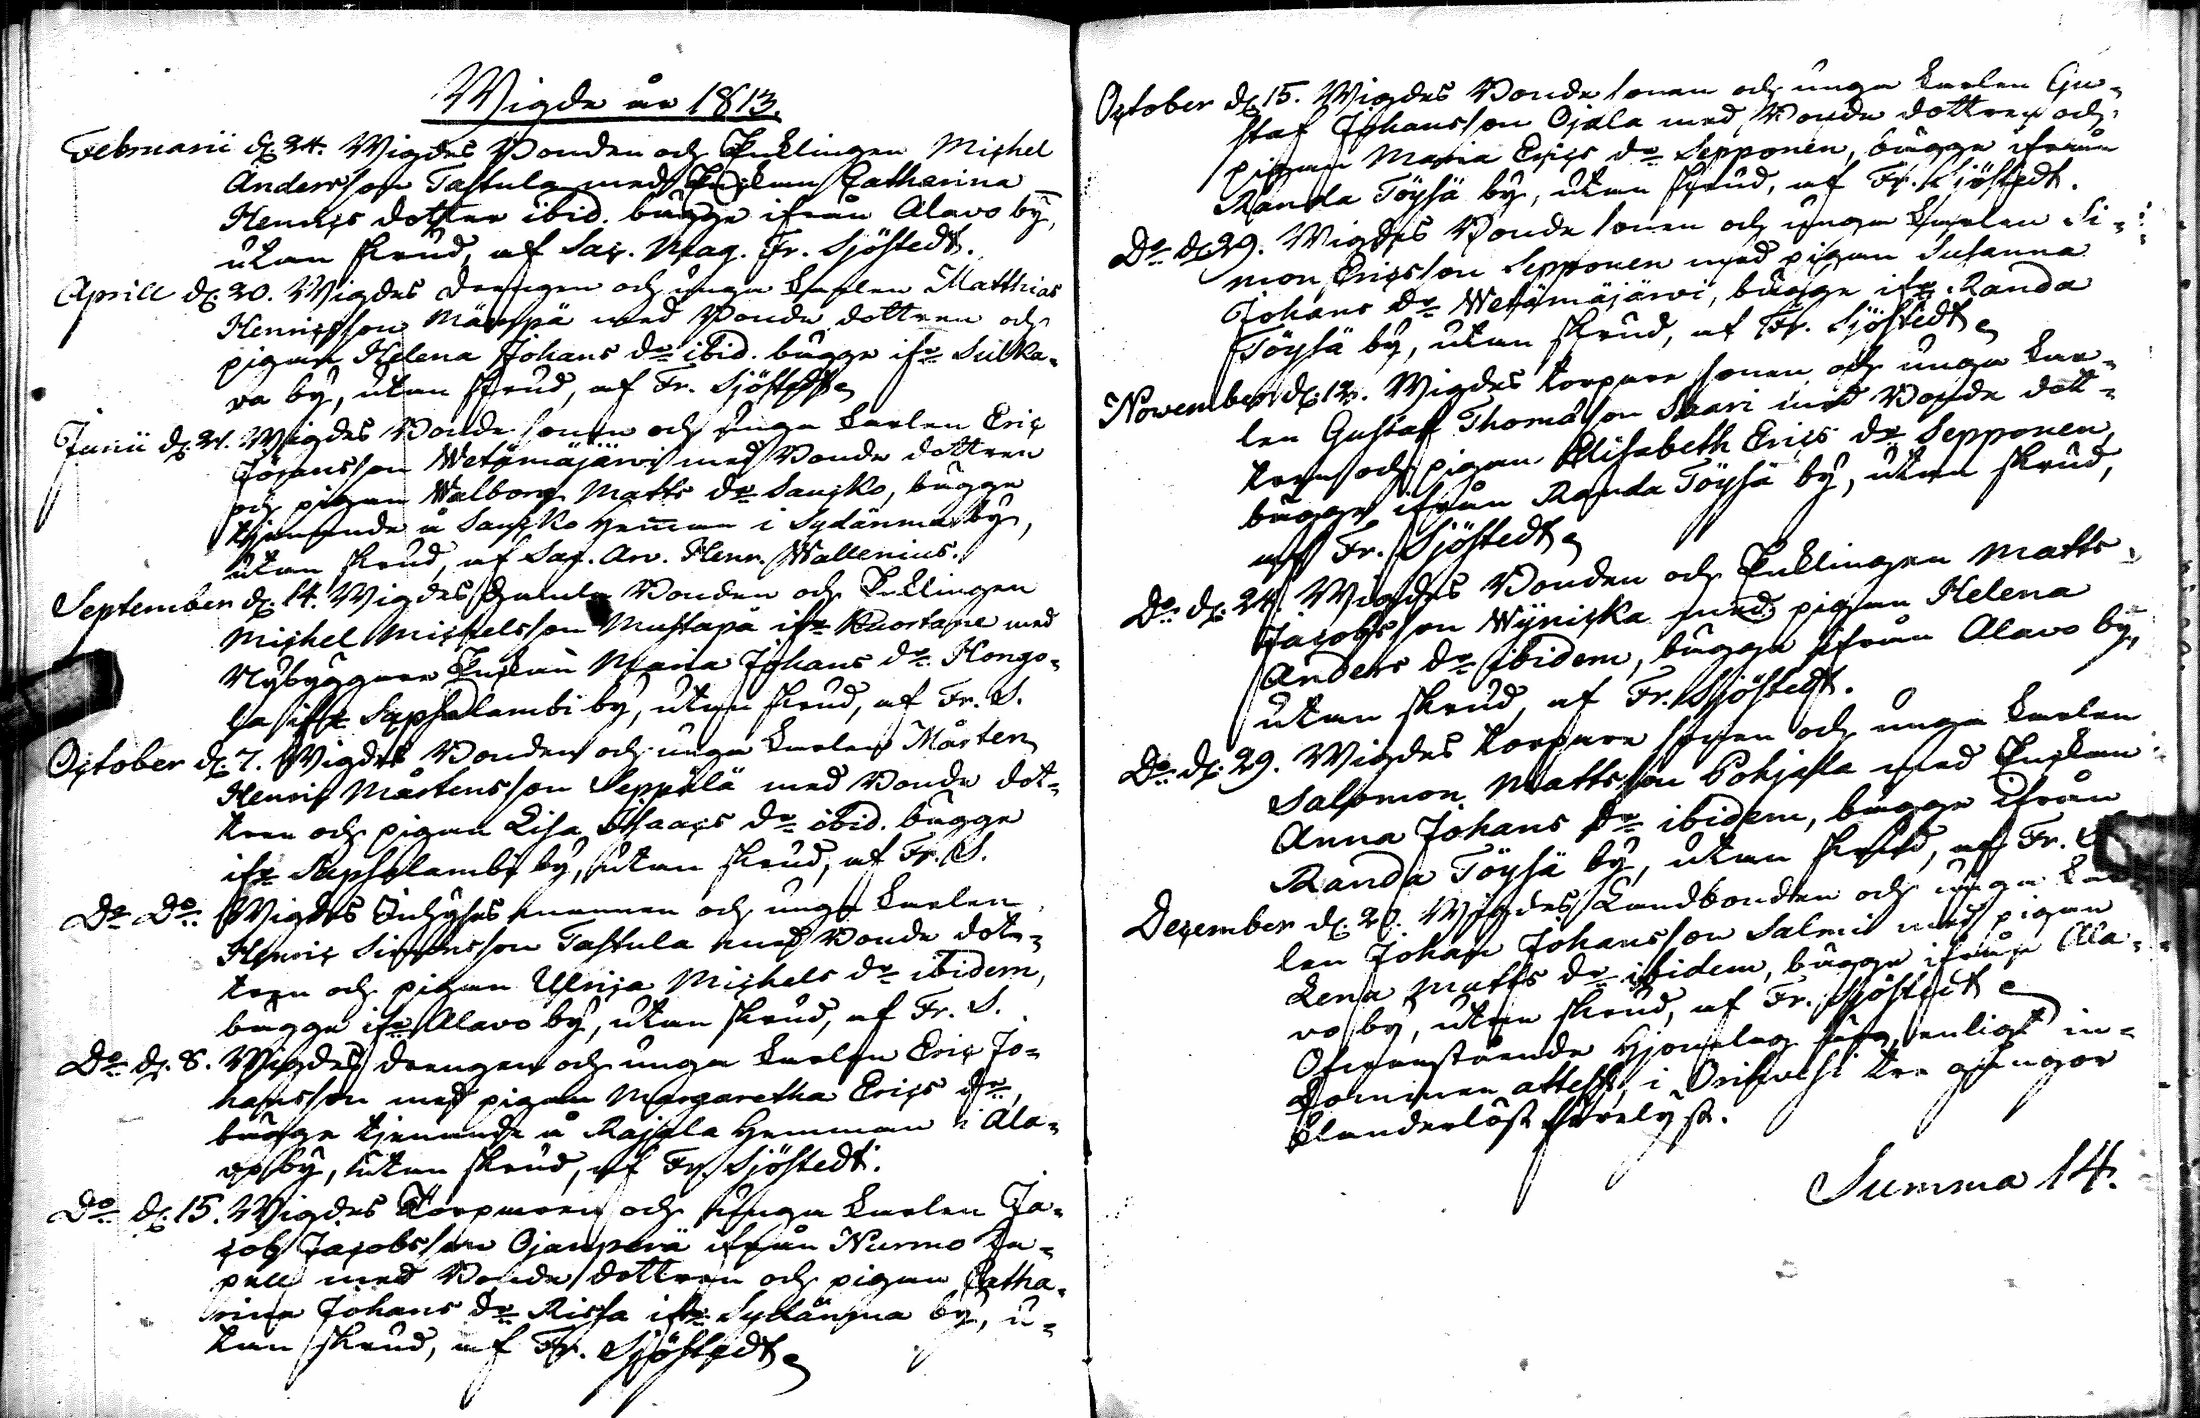 Wigde år 1813.
Februarii d. 24. Wigdes Bonden och Enklingen Michel
Andersson Tastula med Enkan Catharina
Henrics dotter ibid. bägge ifrån Alavo by,
utan skrud, af Sac. Mag. Fr. Sjöstedt.
Aprill d. 20. Wigdes drengen och unga karlen Matthias
Henricsson Mäenpä med Bonde dottren och
pigan Helena Johans dr ibid. bägge ifr Sulka-
va by, utan skrud, af Fr. Sjöstedt
Junii d. 24. Wigdes Bonde sonen och unga karlen Eric
Göransson Wetämäjärvi med Bonde dottren
och pigan Walborg Matts dr Saucko, bägge
tjenande å Saucko Hemman i Sydänma by,
utan skrud, af Sac. Ar. Henr. Wallenius.
September d. 14. Wigdes Gamla Bonden och Enklingen
Michel Michelsson Mustapä ifr Kuortane med
Nybyggare Enkan Maria Johans dr Hongo-
la ifr Sapsalambi by, utan skrud, af Fr. S.
October d. 7. Wigdes Bonden och unga karlen Mårten
Henric Mårtensson Seppälä med Bonde dot-
tren och pigan Lisa Isaacs dr ibid. bägge
ifr Sapsalambi by, utan skrud, af Fr. S.
Do Do. Wigdes Inhyses mannen och unga karlen
Henric Simonsson Tastula med Bonde dot-
tren och pigan Ulrica Michels dr ibidem,
bägge ifr Alavo by, utan skrud, af Fr. S.
Do d. 8. Wigdes drengen och unga karlen Eric Jo-
hansson med pigan Margaretha Erics dr,
bägge tjenande å Rajala Hemman i Ala-
vo by, utan skrud, af Fr. Sjöstedt.
Do d. 15. Wigdes Torparen och unga karlen Ja-
cob Jacobsson Ojanperä ifrån Nurmo Ca-
pell med Bonde dottren och pigan Catha-
rina Johans dr Rissa ifr Sydänma by, u-
tan skrud, af Fr. Sjöstedt
October d. 15. Wigdes Bonde sonen och unga karlen Gu-
staf Johansson Ojala med Bonde dottren och
pigan Maria Erics dr Sepponen, bägge ifrån
Randa Töysä by, utan skrud, af Fr. Sjöstedt.
Do d. 29. Wigdes Bonde sonen och unga karlen Si-
mon Ericsson Sepponen med pigan Susanna
Johans dr Wetämäjärvi, bägge ifr Randa
Töysä by, utan skrud, af Fr. Sjöstedt
November d. 12. Wigdes Torpare sonen och unga kar-
len Gustaf Thomasson Saari med Bonde dott-
tren och pigan Elisabeth Erics dr Sepponen,
bägge ifrån Randa Töysä by, utan skrud,
af Fr. Sjöstedt
Do d. 24. Wigdes Bonden och Enklingen Matts
Jacobsson Wynicka med pigan Helena
Anders dr ibidem, bägge ifrån Alavo by,
utan skrud, af Fr. Sjöstedt.
Do d. 29. Wigdes Torpare sonen och unga karlen
Salomon Mattsson Pohjasla med Enkan
Anna Johans dr ibidem, bägge ifrån
Randa Töysä by, utan skrud, af Fr. S
December d. 20. Wigdes Landbonden och unga kar-
len Johan Johansson Salmi med pigan
Lena Matts dr ibidem, bägge ifrån Ala-
vo by, utan skrud, af Fr. Sjöstedt
Ofvanstående Hjonelag enligt in-
kommen attest, i Orihvesi tre gångor
klanderlöst förelyst.
Summa 14.